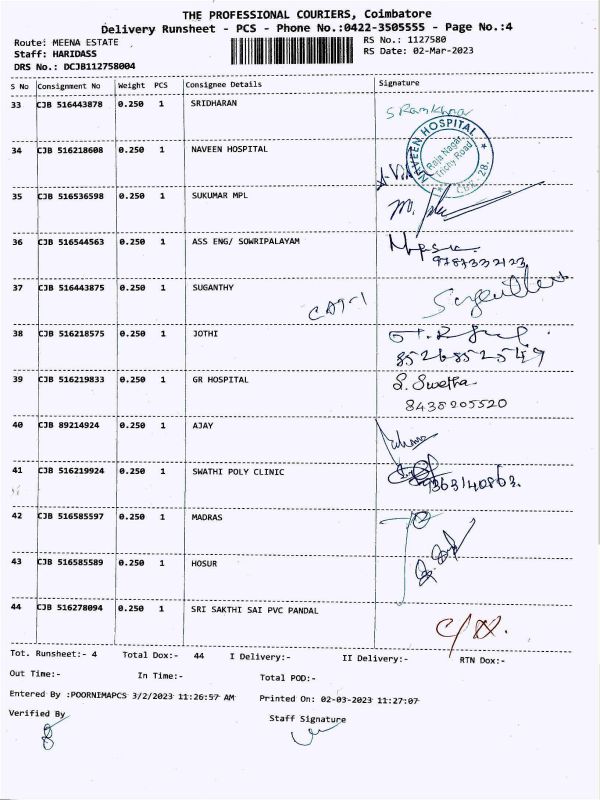 THE PROFESSIONAL COURIERS, Coimbatore
Delivery Runsheet - PCS - Phone No.:0422-3505555 - Page No.:4
Route: MEENA ESTATE
Staff: HARIDASS
DRS No.: DCJB112758004
RS No.: 1127580
RS Date: 02-Mar-2023
S No Consignment No Weight PCS Consignee Details Signature
33 CJB 516443878 0.250 1 SRIDHARAN
34 CJB 516218608 0.250 1 NAVEEN HOSPITAL
NAVEEN HOSPITAL
Raja Nagar
Trichy Road
35 CJB 516536598 0.250 1 SUKUMAR MPL
36 CJB 516544563 0.250 1 ASS ENG/ SOWRIPALAYAM
9787332123
37 CJB 516443875 0.250 1 SUGANTHY
38 CJB 516218575 1 JOTHI
8526852549
39 CJB 516219833 0.250 1 GR HOSPITAL S. Swetha
8438205520
40 CJB 89214924 0.250 1 AJAY
41 CJB 516219924 0.250 1 SWATHI POLY CLINIC
9363140863.
42 CJB 516585597 0.250 1 MADRAS
43 CJB 516585589 0.250 1 HOSUR
44 CJB 516278094 0.250 1 SRI SAKTHI SAI PVC PANDAL
Tot. Runsheet:- 4 Total Dox:- 44 I Delivery:- II Delivery:- RTN Dox:-
Out Time:- In Time:- Total POD:-
Entered By :POORNIMAPCS 3/2/2023 11:26:57 AM Printed On: 02-03-2023 11:27:07
Verified By Staff Signature